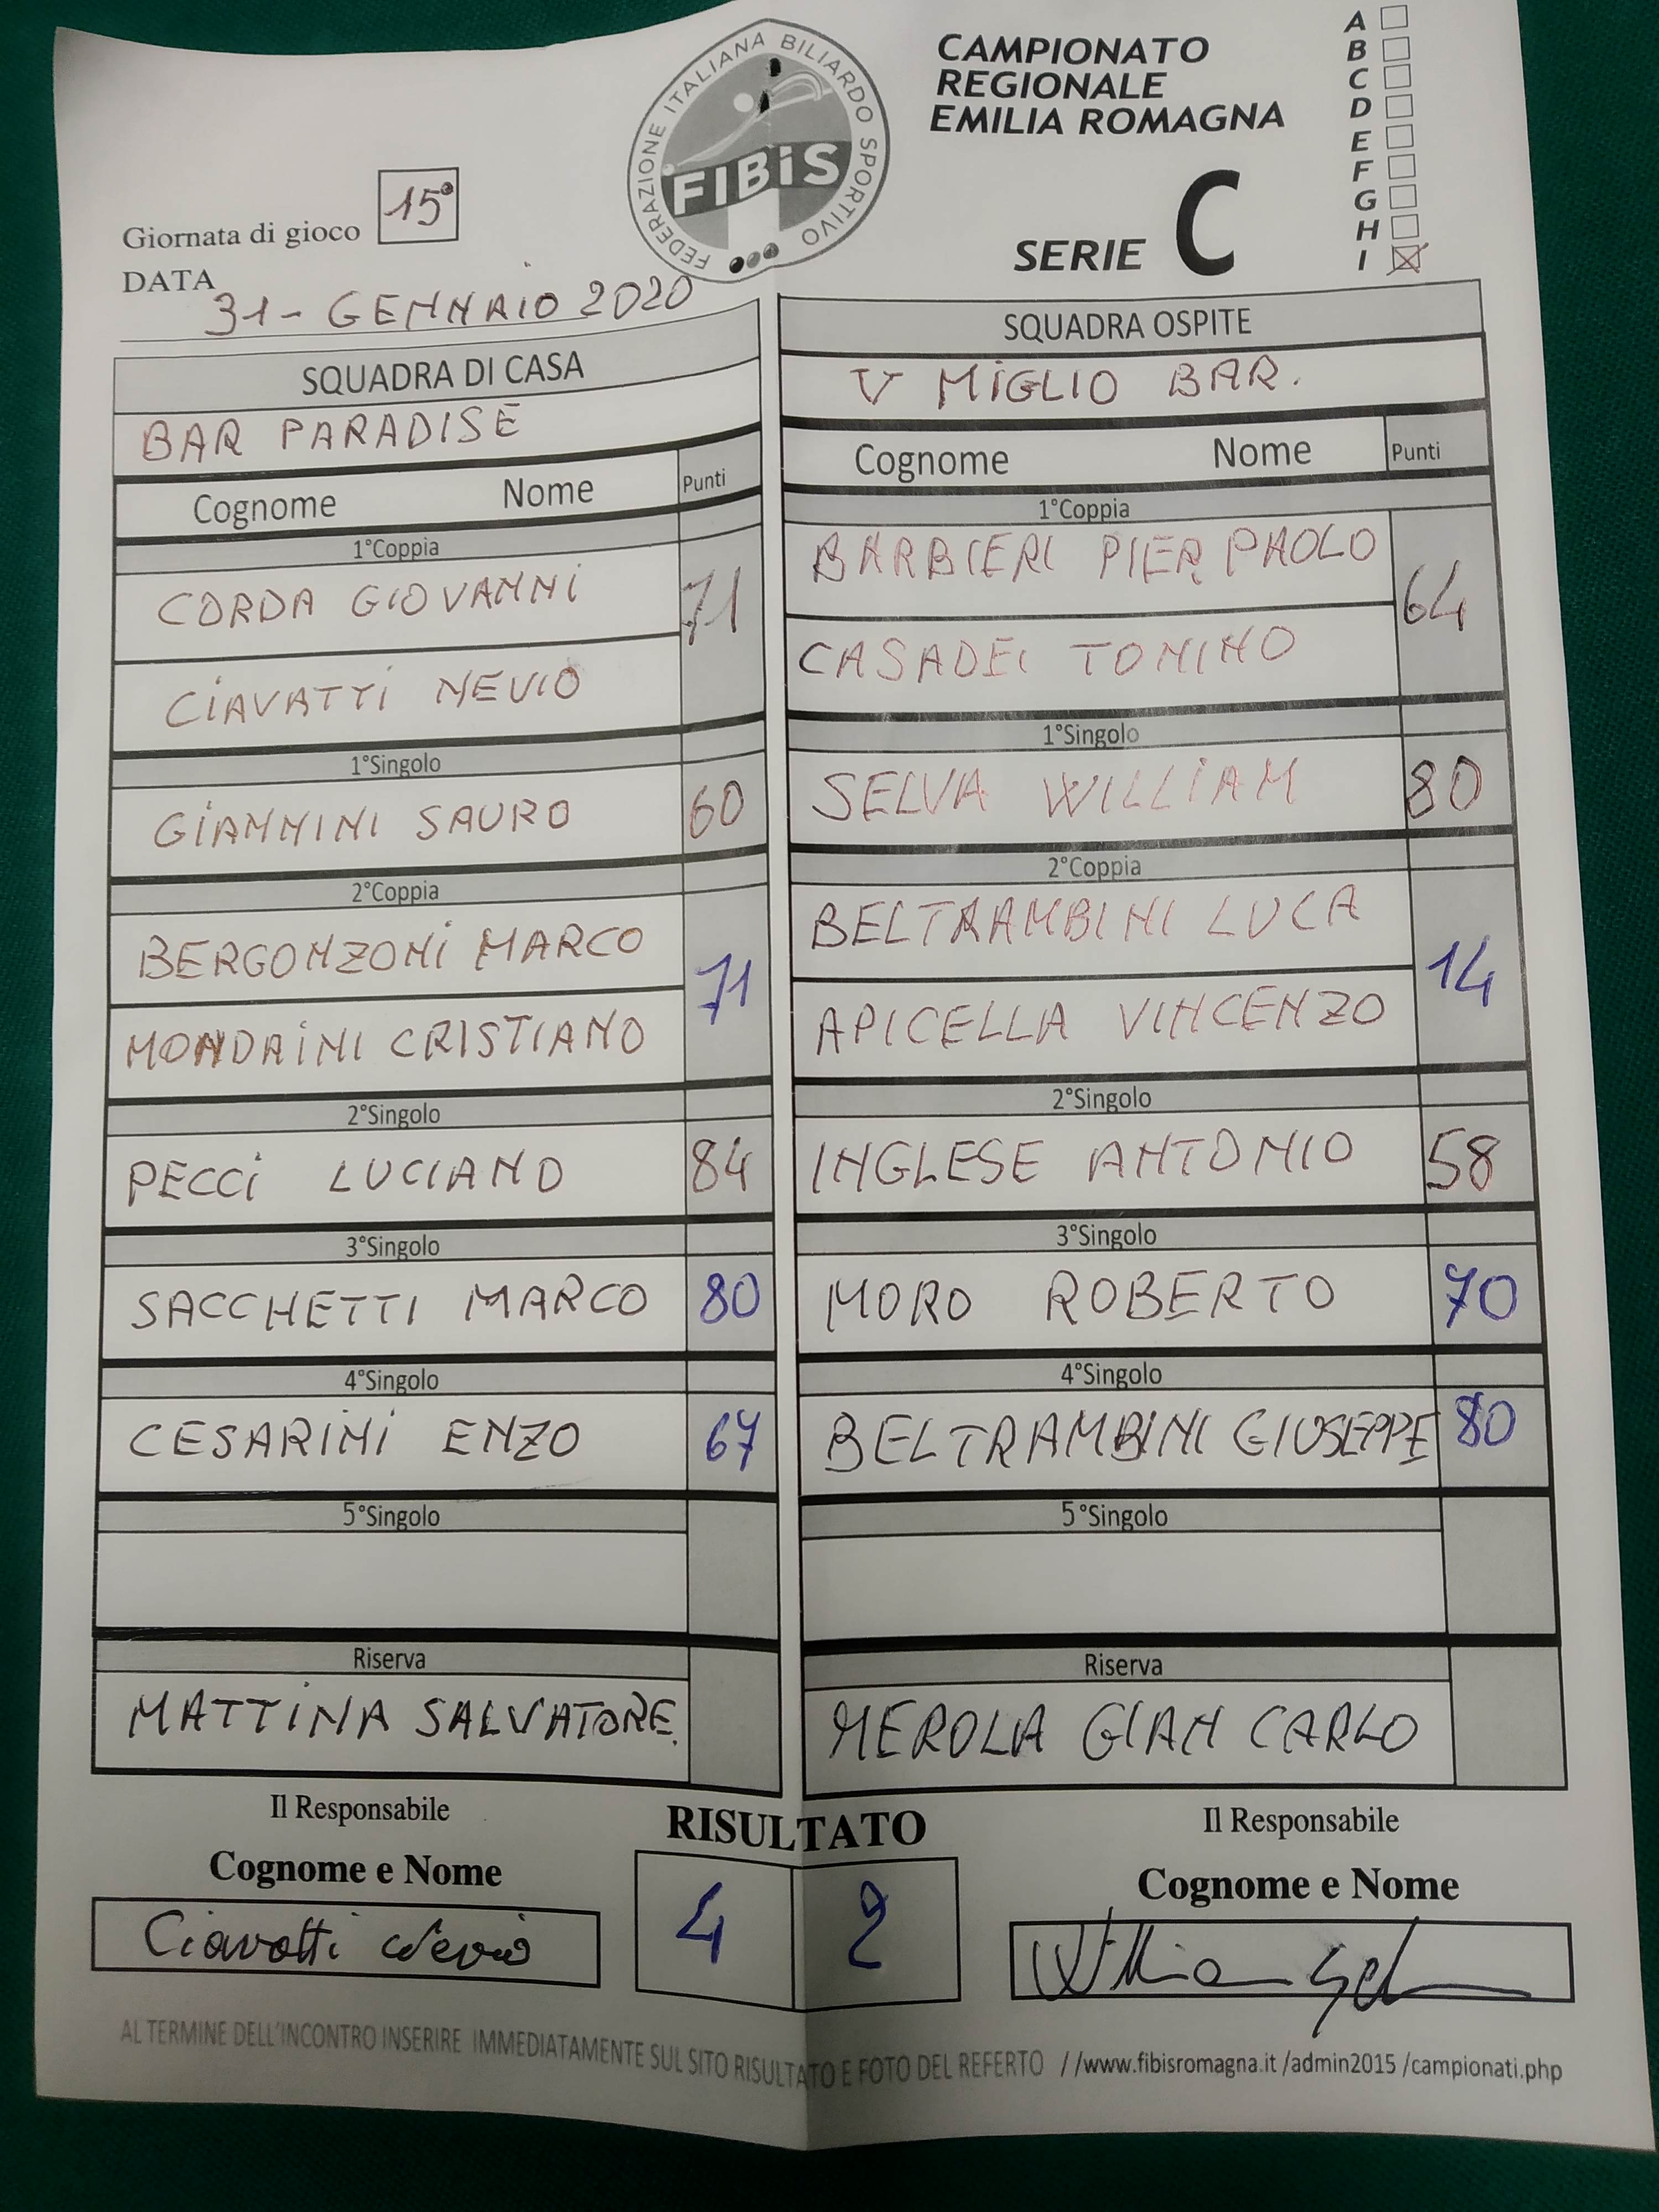 FEDERAZIONE ITALIANA BILIARDO SPORTIVO
FIBiS
CAMPIONATO
REGIONALE
EMILIA ROMAGNA
SERIE C
A
B
C
D
E
F
G
H
I
Giornata di gioco 15°
DATA 31- GENNAIO 2020
SQUADRA DI CASA
BAR PARADISE
Cognome Nome Punti
1°Coppia
CORDA GIOVANNI 71
CIAVATTI NEVIO
1°Singolo
GIANNINI SAURO 60
2°Coppia
BERGONZONI MARCO 71
MONDAINI CRISTIANO
2°Singolo
PECCI LUCIANO 84
3°Singolo
SACCHETTI MARCO 80
4°Singolo
CESARINI ENZO 67
5°Singolo
Riserva
MATTINA SALVATORE.
SQUADRA OSPITE
V MIGLIO BAR.
Cognome Nome Punti
1°Coppia
BARBIERI PIER PAOLO 64
CASADEI TONINO
1°Singolo
SELVA WILLIAM 80
2°Coppia
BELTRAMBINI LUCA 14
APICELLA VINCENZO
2°Singolo
INGLESE ANTONIO 58
3°Singolo
MORO ROBERTO 70
4°Singolo
BELTRAMBINI GIUSEPPE 80
5°Singolo
Riserva
MEROLA GIAN CARLO
Il Responsabile
Cognome e Nome
Ciavatti Nevio
RISULTATO
4 2
Il Responsabile
Cognome e Nome
William Sel
AL TERMINE DELL'INCONTRO INSERIRE IMMEDIATAMENTE SUL SITO RISULTATO E FOTO DEL REFERTO //www.fibisromagna.it /admin2015 /campionati.php